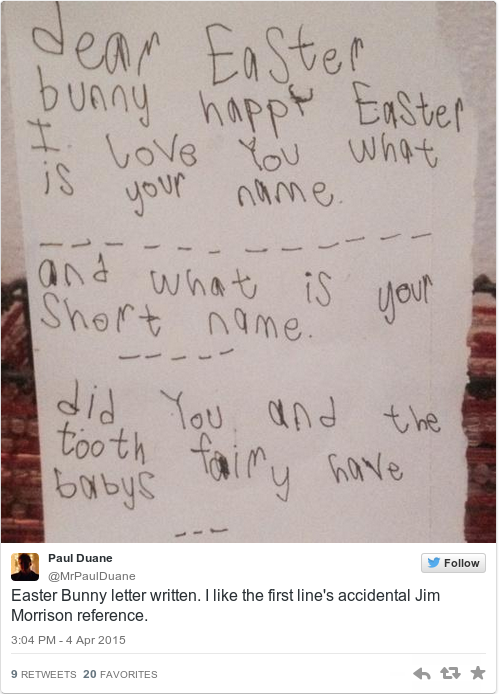 dear Easter
bunny happy Easter
I love You what
is your name.
_ _ _ _ _ _ _ _ _ _ _ _
and what is your
Short name.
_ _ _ _ _
did You and the
tooth fairy have
babys
_ _ _
Paul Duane
@MrPaulDuane
Follow
Easter Bunny letter written. I like the first line's accidental Jim
Morrison reference.
3:04 PM - 4 Apr 2015
9 RETWEETS 20 FAVORITES